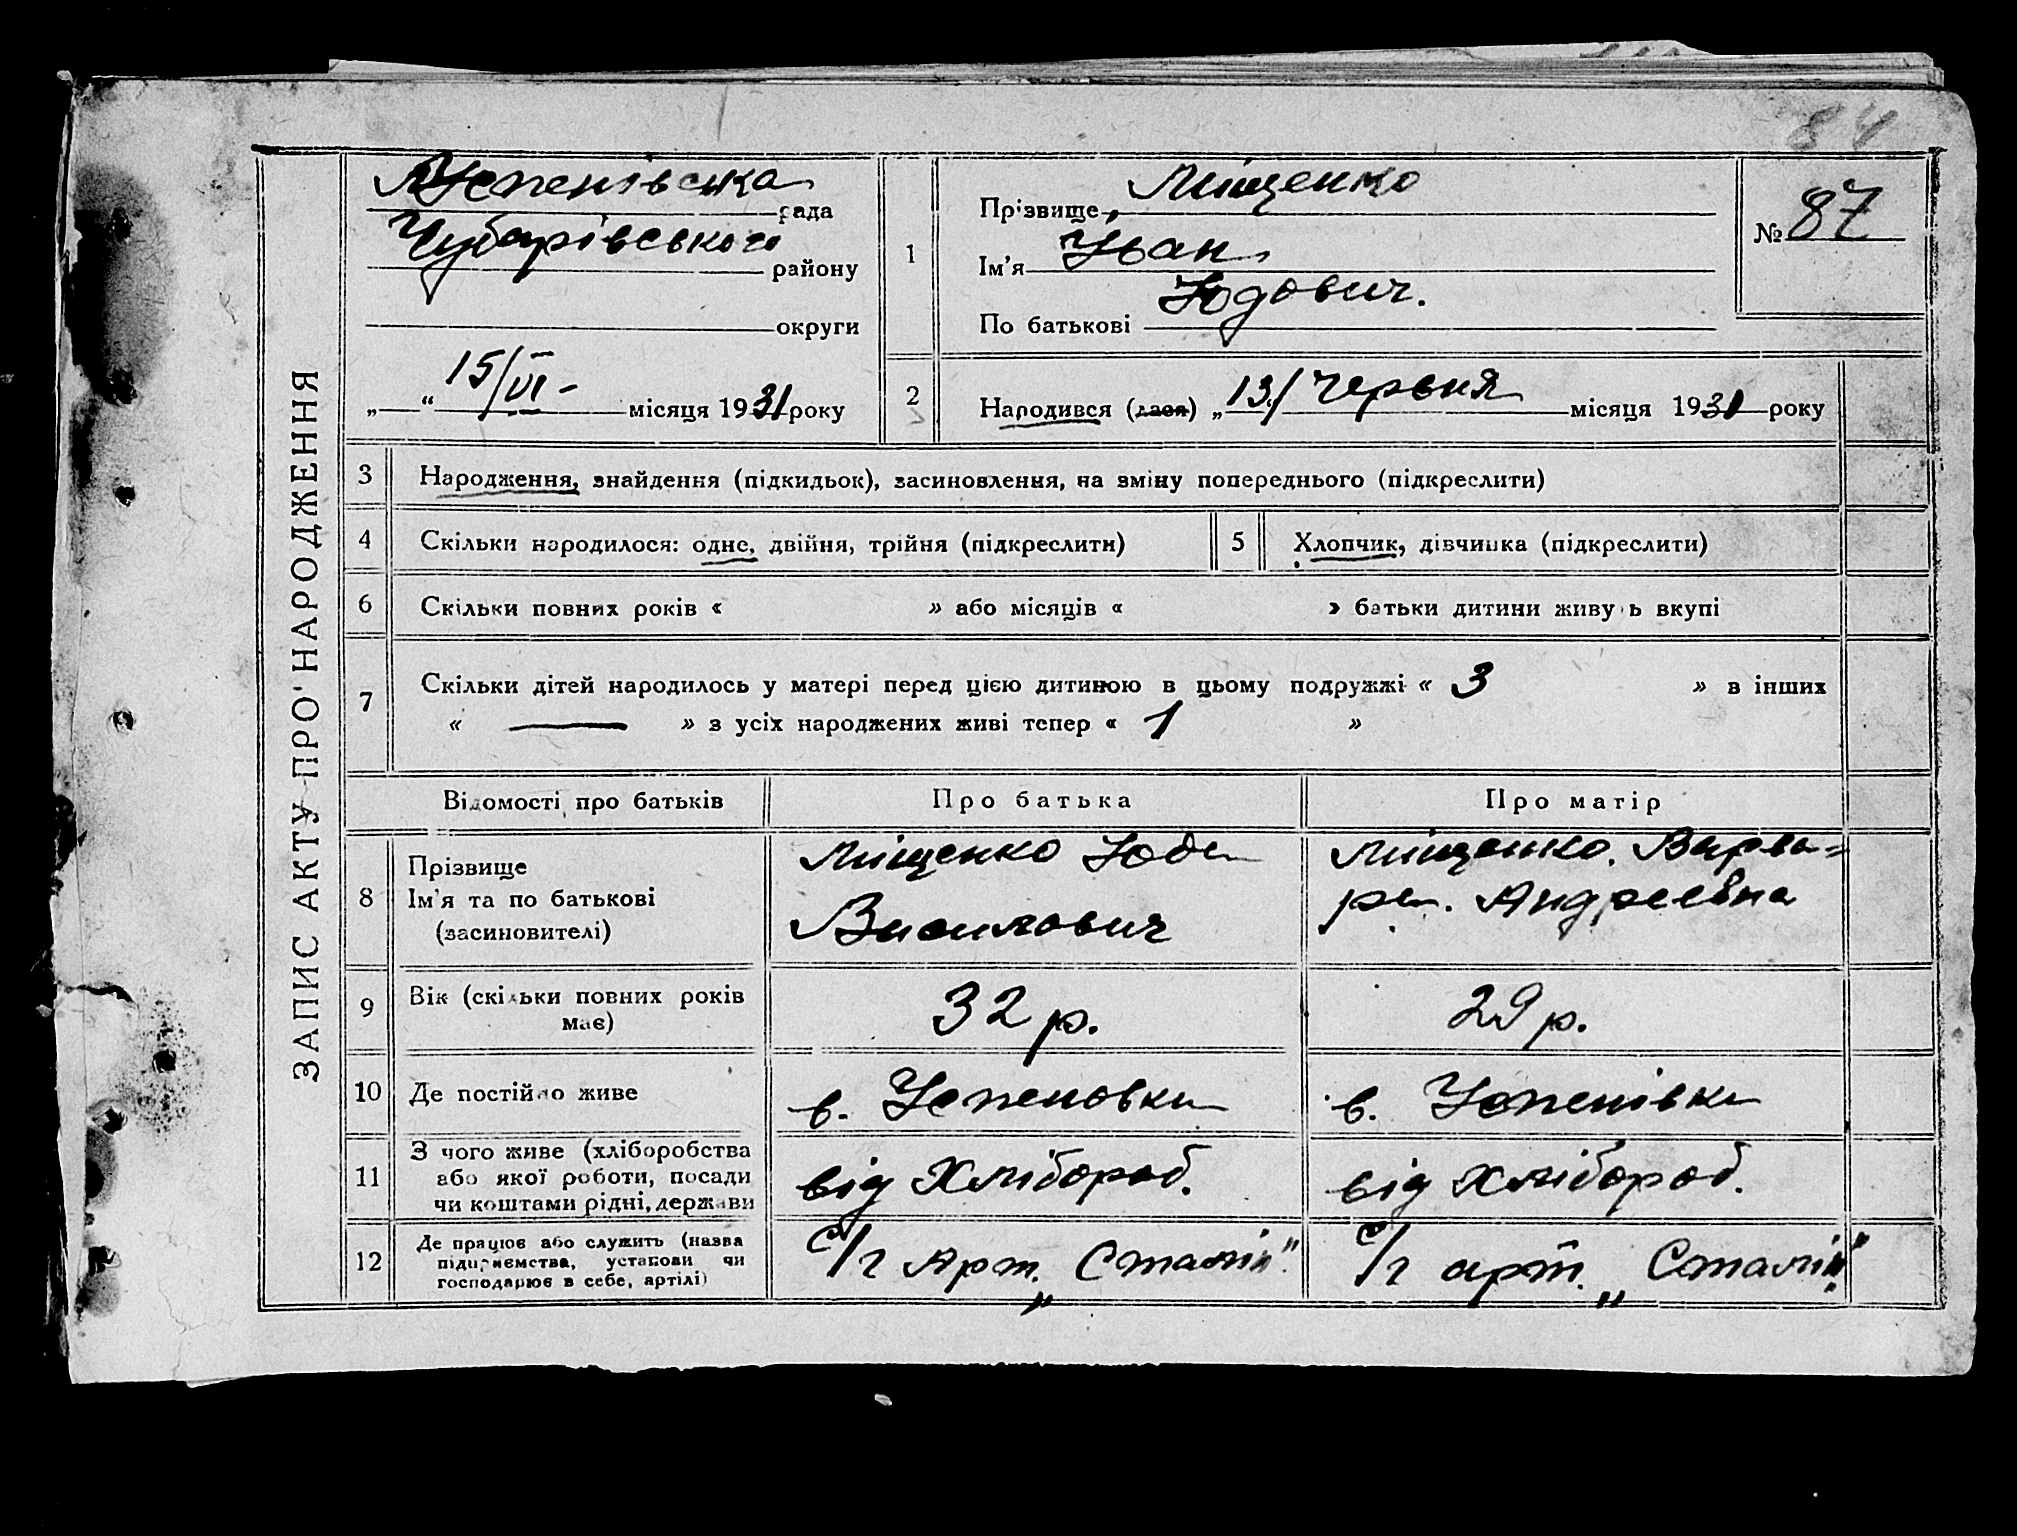 84
ЗАПИС АКТУ ПРО НАРОДЖЕННЯ
Успенівська рада
Чубарівського району
округи
„ “ 15/VI - місяця 1931 року
1
Прізвище Міщенко
Ім'я Іван
По батькові Юдович.
№ 87
2 Народився (лася) „13/“ Червня місяця 1931 року
3 Народження, знайдення (підкидьок), засиновлення, на зміну попереднього (підкреслити)
4 Скільки народилося: одне, двійня, трійня (підкреслити)
5 Хлопчик, дівчинка (підкреслити)
6 Скільки повних років « » або місяців « » батьки дитини живуть вкупі
7 Скільки дітей народилось у матері перед цією дитиною в цьому подружжі « 3 » в інших
« — » з усіх народжених живі тепер « 1 »
Відомості про батьків
Про батька
Про матір
8 Прізвище
Ім'я та по батькові
(засновителі)
Міщенко Юда
Василович
Міщенко. Варва=
ра. Андреевна
9 Вік (скільки повних років
має)
32 р.
29 р.
10 Де постійно живе
в. Успеновка
в. Успенівка
11 З чого живе (хліборобства
або якої роботи, посади
чи коштами рідні, держави
від Хлібороб.
від Хлібороб.
12 Де працює або служить (назва
підприємства, установи чи
господарює в себе, артілі)
с/г Арт. „Сталін“.
с/г арт. „Сталін“.